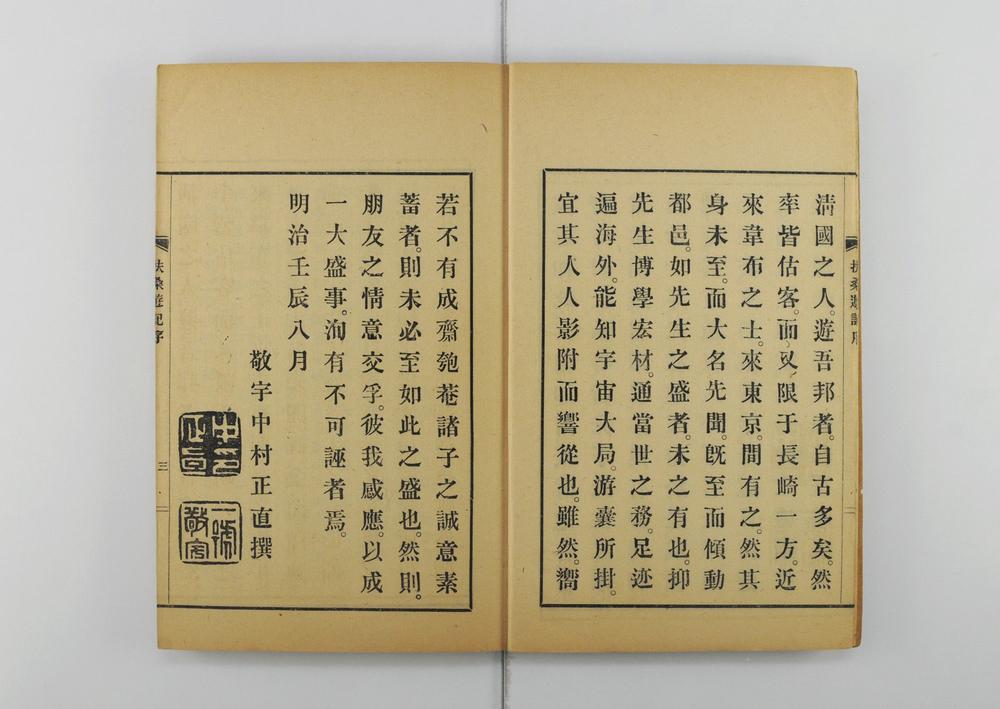 清國之人。遊吾邦者。自古多矣。然
率皆估客。而又限于長崎一方。近
來韋布之士。來東京。間有之。然其
身未至。而大名先聞。旣至而傾動
都邑。如先生之盛者。未之有也。抑
先生博學宏材。通當世之務。足迹
遍海外。能知宇宙大局。游囊所掛。
宜其人人影附而響從也。雖然。嚮
若不有成齋匏菴諸子之誠意素
蓄者。則未必至如此之盛也。然則。
朋友之情意交孚。彼我感應。以成
一大盛事。洵有不可誣者焉。
明治壬辰八月
敬宇中村正直撰
中邨正直
一號敬宇
扶桑遊記序
三